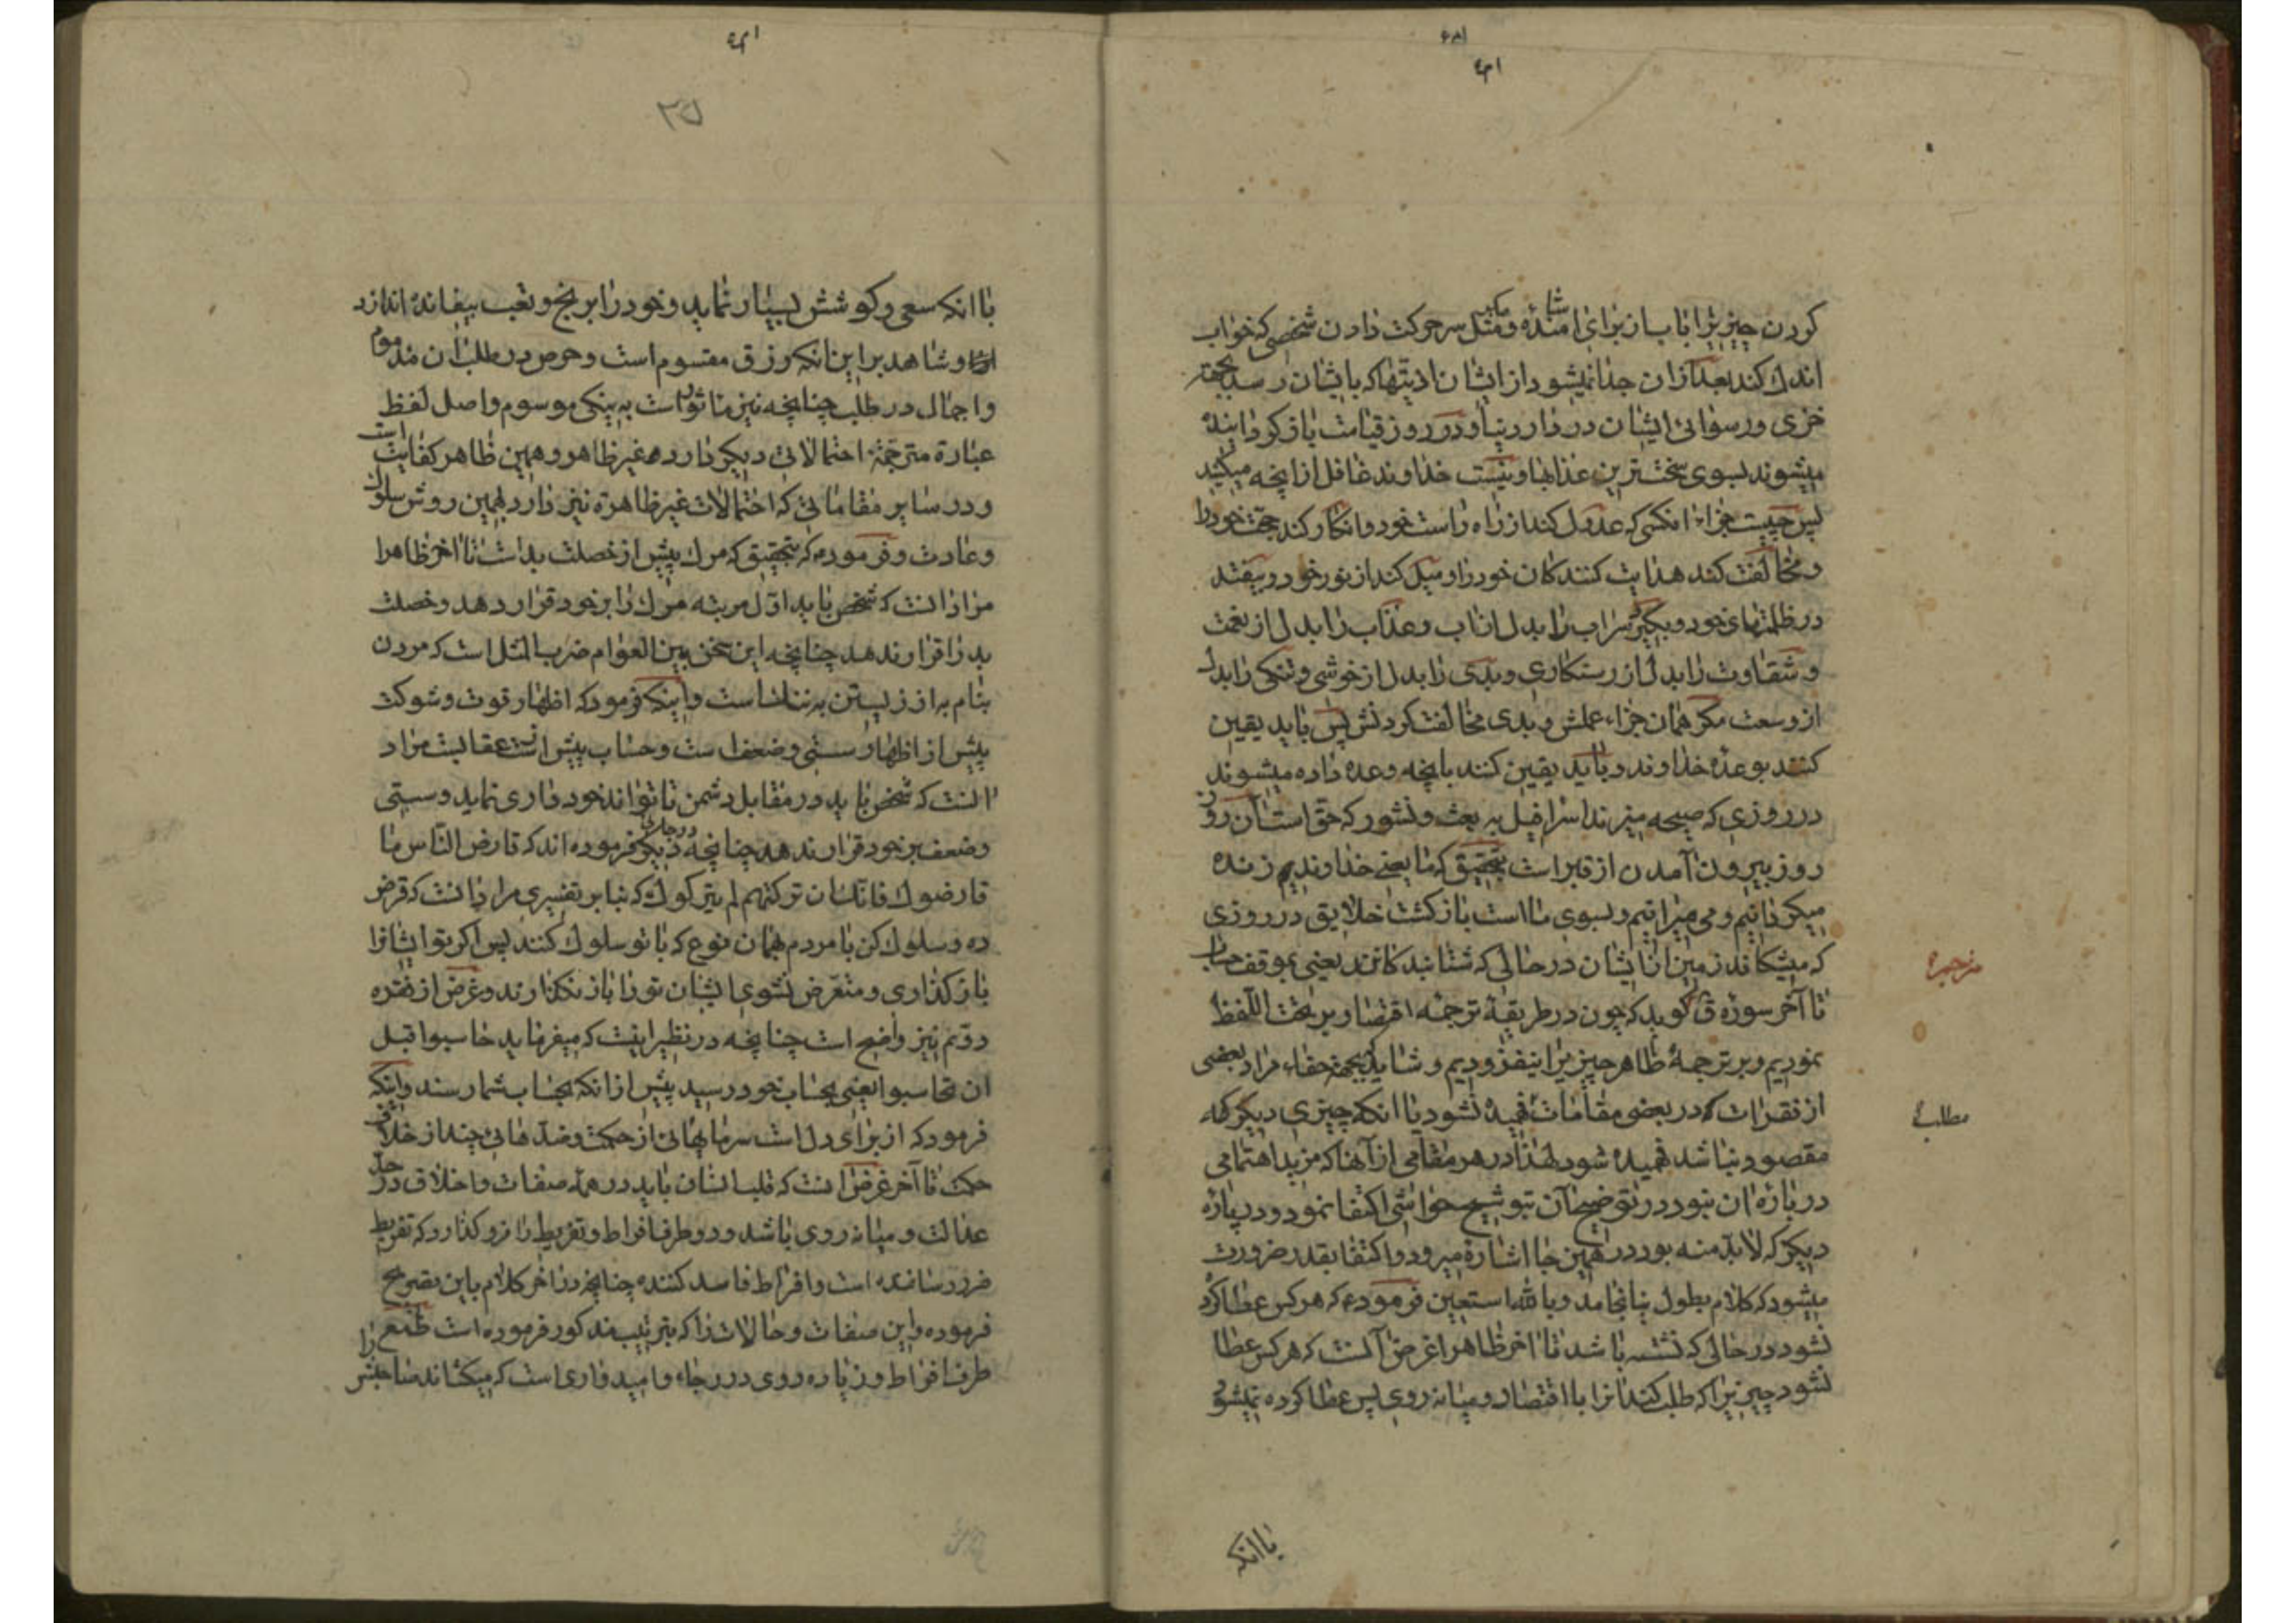 كردن چيزيرا يا باز براى امثده و مثل سر حركت دادن شخصى كه خواب
اندك كند بعد از ان جدا نميشود از ايشان اذيتها كه بايشان رسد بجهة
خزى و رسوائى ايشان در دار دنيا و در روز قيامت باز كردانيده
ميشوند بسوى سخت ترين عذابها و نيست خداوند غافل از انچه ميكنيد
پس چيست جزاء انكسى كه عدول كند از راه راست خود و انكار كند حجت خود را
و مخالفت كند هدايت كنندكان خود را و ميل كند از نور خود و بيفتد
در ظلمتهاى خود و بكيرد سراب را بدل از اب و عذاب را بدل از نعمت
و شقاوت را بدل از رستكارى و بدى را بدل از خوشى و تنكى را بدل
از وسعت مكر همان جزاء عملش و بدى مخالفت كردنش پس بايد يقين
كنند بوعده خداوند و بايد يقين كنند بانچه وعده داده ميشوند
در روزى كه صيحه ميزند اسرافيل به بعث و نشور كه حق است آن روز
روز بيرون آمدن از قبر است بتحقيق كه ما يعنى خداونديم زنده
ميكردانيم و مى ميرانيم و بسوى ما است بازكشت خلايق در روزى
كه ميشكافد زمين از ايشان در حالى كه شتابندكانند يعنى بموقف حساب
تا آخر سوره ق كويد كه چون در طريقة ترجمه اقتصار بر تحت اللفظ
نموديم و بر ترجمۀ ظاهر چيزيرا نيفزوديم و شايد بجهة خفاء مراد بعضى
از فقرات كه در بعضى مقامات فهميده نشود يا انكه چيزى ديكر كه
مقصود نباشد فهميده شود لهذا در هر مقامى از آنها كه مزيد اهتمامى
در باره ان نبود در توضيح آن بتوشيح حواشى اكتفا نمود و در پاره
ديكر كه لابد منه بود در همين جا اشاره ميرود و اكتفا بقدر ضرورت
ميشود كه كلام بطول نيانجامد و بالله استعين فرموده كه هر كس عطا كرده
نشود در حالى كه نشسته باشد تا اخر ظاهرا غرض آنست كه هر كس عطا
نشود چيزيرا كه طلب كند انرا با اقتصاد و ميانه روى پس عطا كرده نميشود
مترجمه
مطالب
با انكه
٣٥
با انكه سعى و كوشش بسيار نمايد و خود را برنج و تعب بيفائده اندازد
و شاهد بر اين انكه رزق مقسوم است و حرص در طلب ان مذموم
و اجمال در طلب چنانچه نيز ماثور است به نيكى موسوم و اصل لفظ
عبارة مترجمة احتمالاتى ديكر دارد غير ظاهر و همين ظاهر كفايت است
و در ساير مقاماتى كه احتمالات غير ظاهرة نيز دارد بهمين روش سلوك
و عادت و فرموده كه بتحقيق كه مرك پيش از خصلت بد است تا اخر ظاهرا
مراد انست كه شخص بايد اول مرتبه مرك را بر خود قرار دهد و خصلت
بد را قرار ندهد چنانچه اين سخن بين العوام ضرب المثل است كه مردن
بنام به از زيستن به ننك است و اينكه فرمود كه اظهار قوت و شوكت
پيش از اظهار سستى و ضعف است و حساب پيش از عقابست مراد
انست كه شخص بايد در مقابل دشمن تا تواند خوددارى نمايد و سستى
و ضعف بر خود قرار ندهد چنانچه در جاى ديكر فرموده اند كه قارض الناس ما
قارضوك فانك ان تركتهم لم يتركوك كه بنا بر تفسيرى مراد انست كه قرض
ده و سلوك كن با مردم بهمان نوع كه با تو سلوك كنند پس اكر تو ايشانرا
باز كذارى و متعرض نشوى ايشان تو را باز نكذارند و غرض از فقره
دوم نيز واضح است چنانچه در نظير اينست كه ميفرمايد حاسبوا قبل
ان تحاسبوا يعنى بحساب خود رسيد پيش از انكه بحساب شما رسند و اينكه
فرمود كه از براى دل است سرمايهائى از حكمت و ضدهائى چند از خلاف
حكمت تا آخر غرض انست كه قلب انسان بايد در همه صفات و اخلاق در حد
عدالت و ميانه روى باشد و دو طرف افراط و تفريط را فرو كذارد كه تفريط
ضرر رساننده است و افراط فاسد كننده چنانچه در اخر كلام باين تصريح
فرموده و اين صفات و حالات را كه بترتيب مذكور فرموده است طمع را
طرف افراط و زياده روى در رجاء و اميدوارى است كه ميكشاند صاحبش